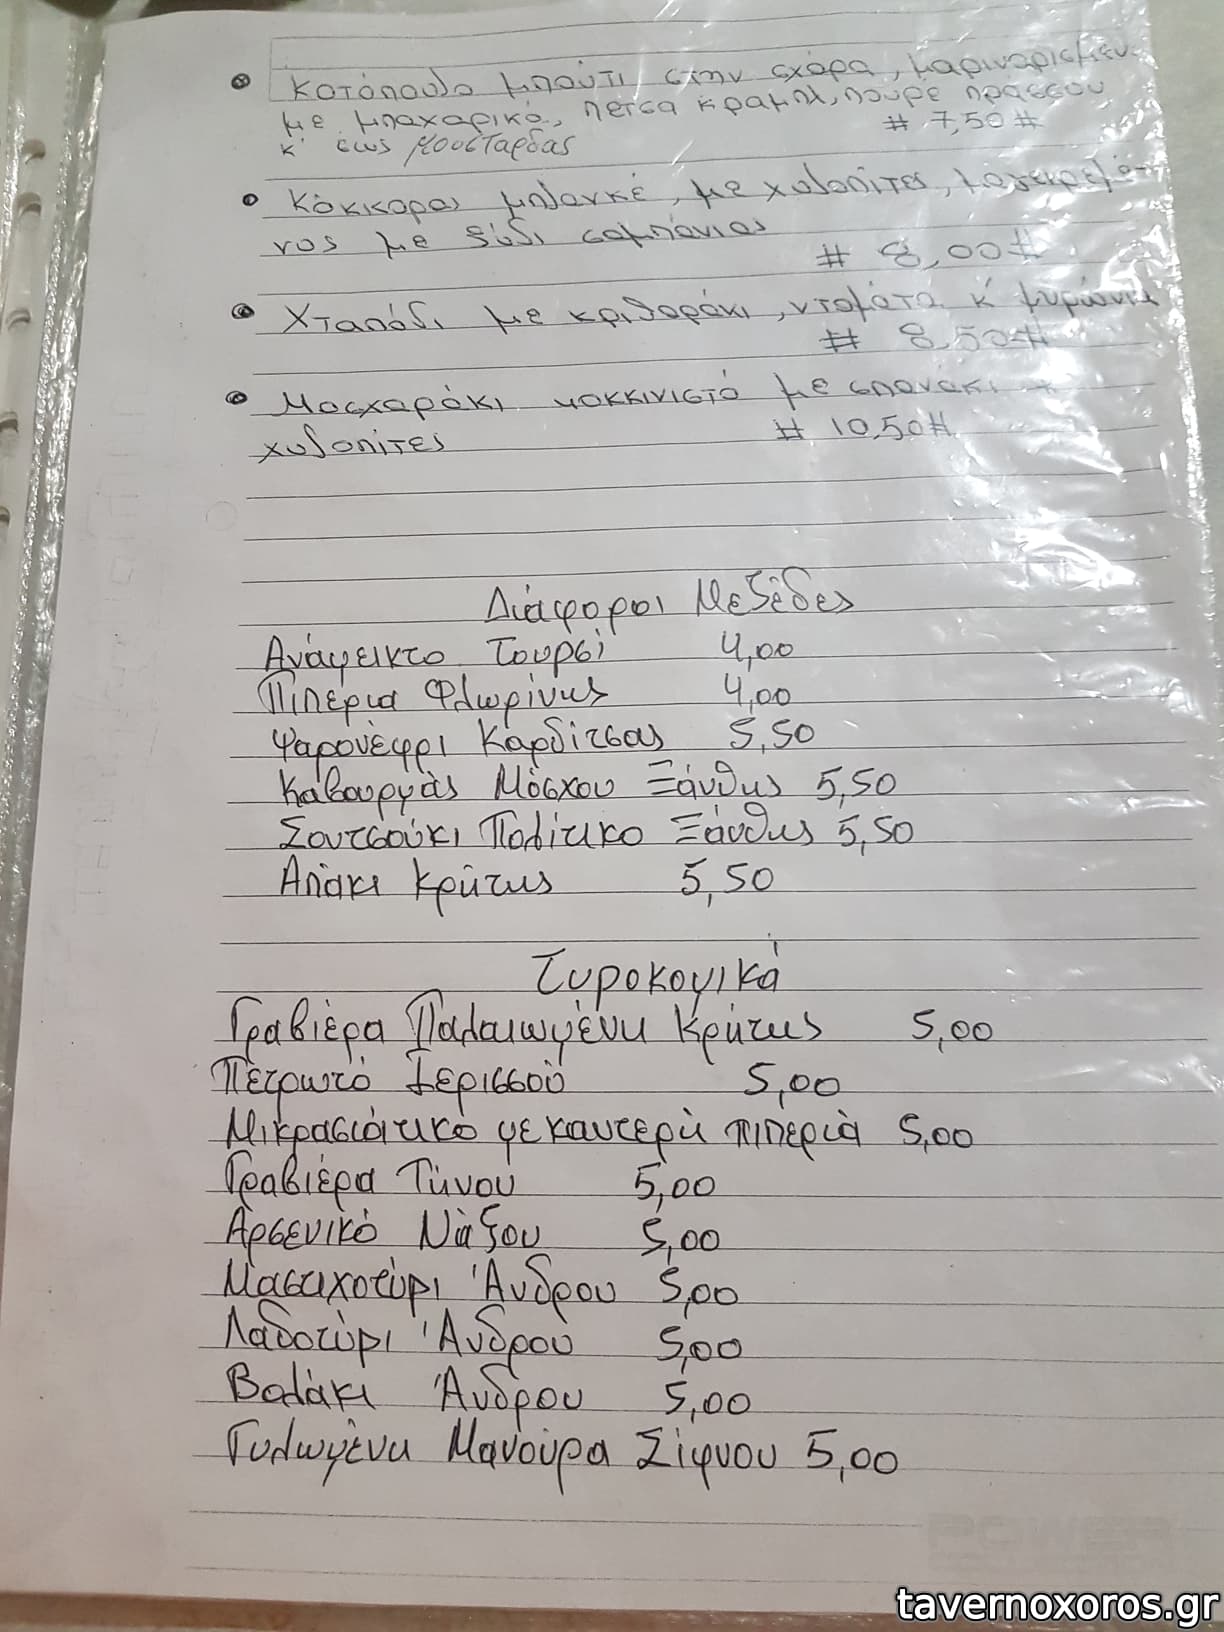 Κοτόπουλο μπούτι στην σχάρα, μαριναρισμέν-
με μπαχαρικά, πέτσα κραμπλ, πουρέ πράσσου
κ' σως μουστάρδας # 7,50 #
Κόκκορας μπλανκέ, με χυλοπίτες, μαγειρεμέ-
νος με ξύδι σαμπάνιας
# 8,00 #
Χταπόδι με κριθαράκι, ντομάτα κ' μυρώνια
# 8,50 #
Μοσχαράκι κοκκινιστό με σπανάκι +
χυλοπίτες # 10,50 #
Διάφοροι Μεζέδες
Ανάμεικτο Τουρσί 4,00
Πιπεριά Φλωρίνης 4,00
Ψαρονέφρι Καρδίτσας 5,50
Καβουρμάς Μόσχου Ξάνθης 5,50
Σουτσούκι Πολίτικο Ξάνθης 5,50
Απάκι Κρήτης 5,50
Τυροκομικά
Γραβιέρα Παλαιωμένη Κρήτης 5,00
Πετρωτό Ιερισσού 5,00
Μικρασιάτικο με καυτερή πιπεριά 5,00
Γραβιέρα Τήνου 5,00
Αρσενικό Νάξου 5,00
Μαστιχοτύρι Άνδρου 5,00
Λαδοτύρι Άνδρου 5,00
Βολάκι Άνδρου 5,00
Γυλωμένη Μανούρα Σίφνου 5,00
POWER
tavernoxoros.gr